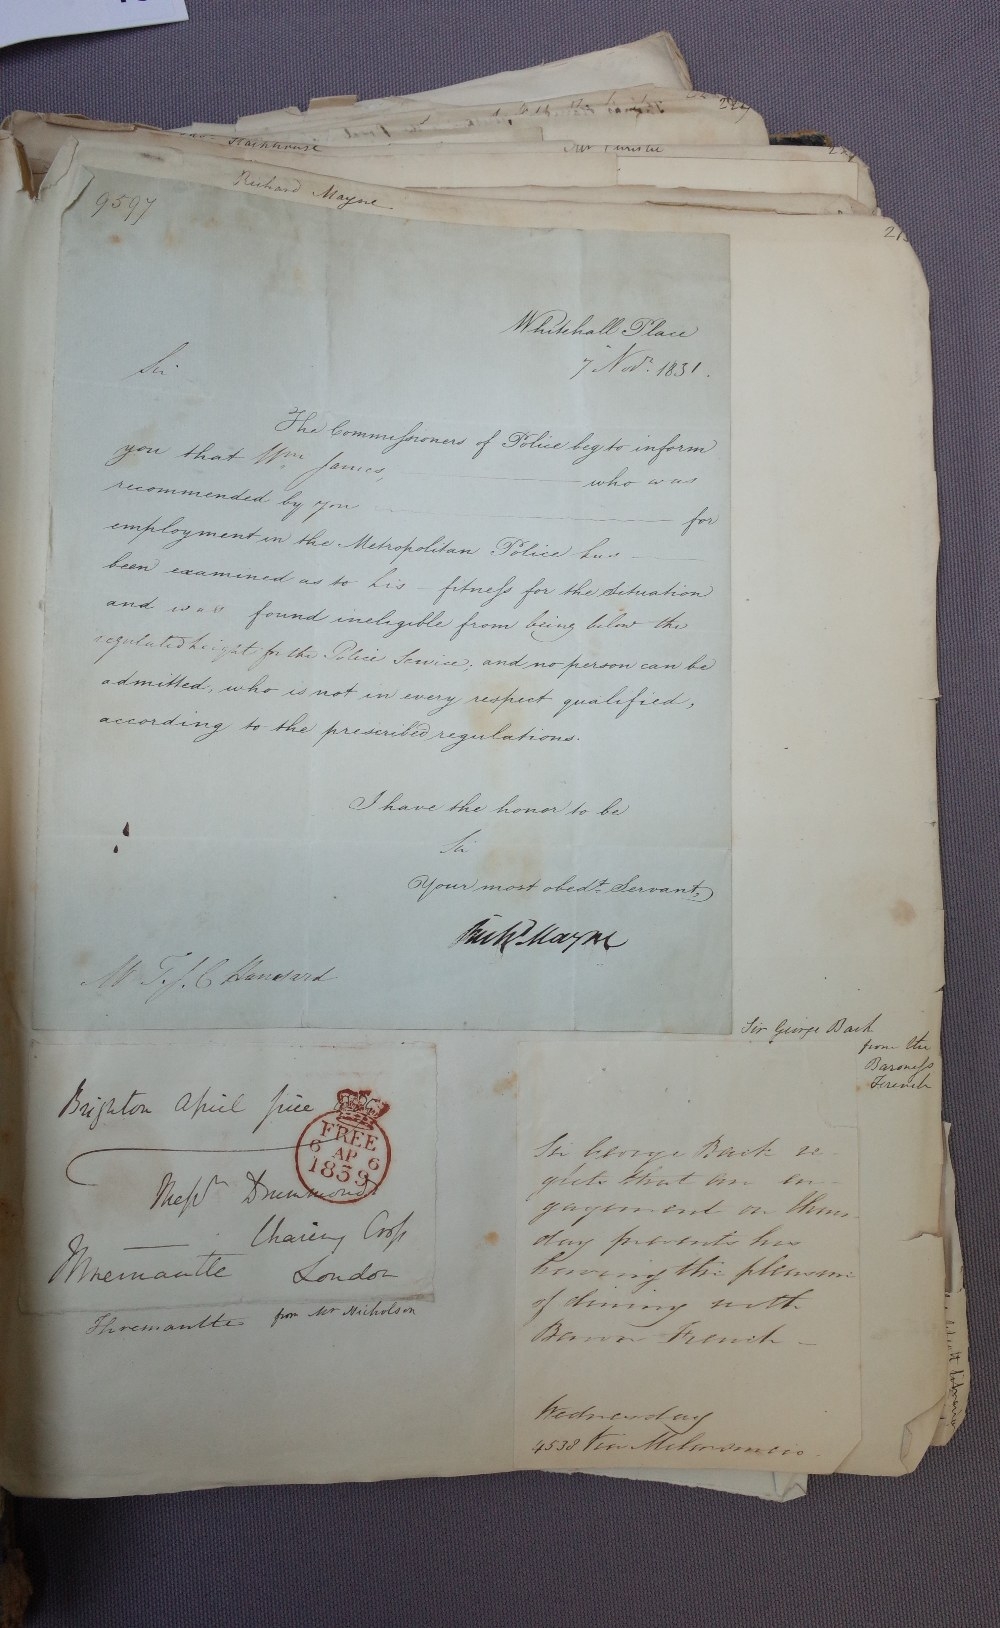 Stackhouse
Richard Mayne
9597
Whitehall Place
7 Novr. 1831.
Sir
The Commissioners of Police beg to inform
you that Wm James, who was
recommended by you for
employment in the Metropolitan Police has
been examined as to his fitness for the situation
and was found ineligible from being below the
regulated height for the Police Service; and no person can be
admitted, who is not in every respect qualified,
according to the prescribed regulations.
I have the honor to be
Sir
Your most obedt. Servant,
Richd Mayne
Mr T. J. C Hansard
Brighton April five
FREE
6 AP 6
1839
Messrs Drummond
Charing Cross
London
from Mr Nicholson
Sir George Back
from the
Baroness
Sir George Back re-
grets that an en-
gagement on Thurs-
day prevents his
having the pleasure
of dining with
Baron
Wednesday
4538 Via